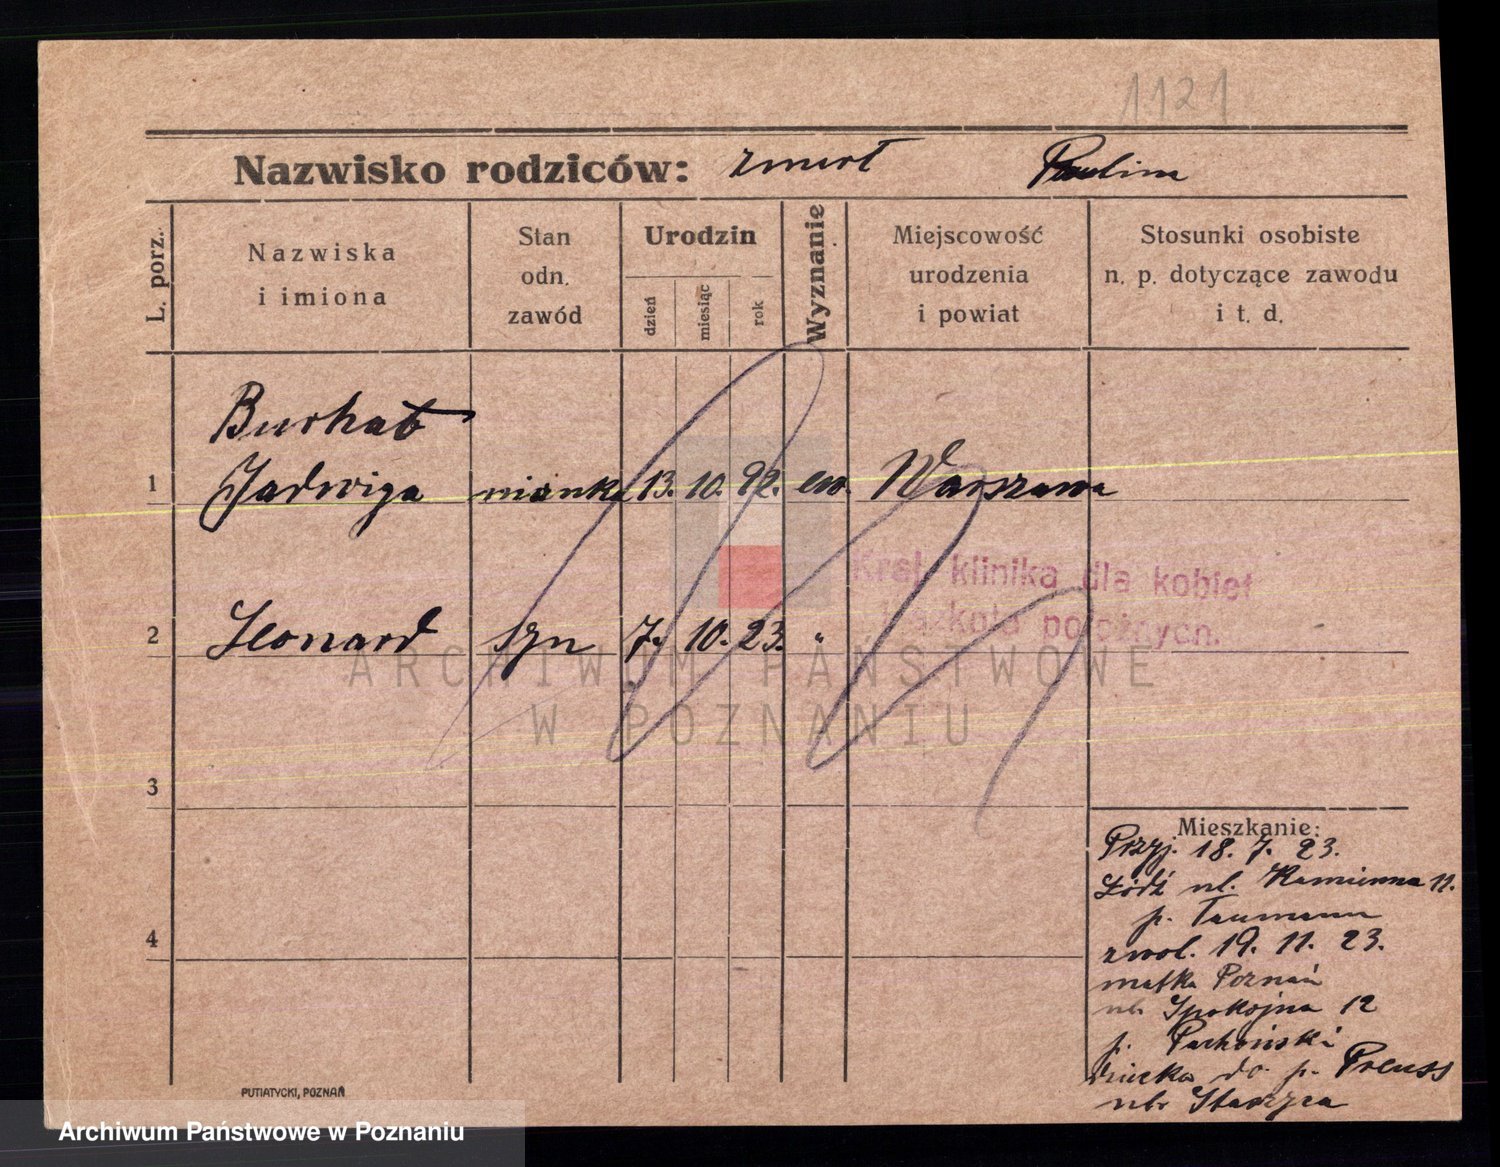 1121
Nazwisko rodziców: zmarł Paulina
L. porz.
Nazwiska
i imiona
Stan
odn.
zawód
Urodzin
dzień
miesiąc
rok
Wyznanie
Miejscowość
urodzenia
i powiat
Stosunki osobiste
n. p. dotyczące zawodu
i t. d.
Burhat
1 Jadwiga nianka 13. 10. 92. ew. Warszawa
Kraj. klinika dla kobiet
i szkoła położnych.
2 Leonard syn 7. 10. 23. "
ARCHIWUM PAŃSTWOWE
W POZNANIU
3
4
Mieszkanie:
Przyj. 18. 7. 23.
Łódź ul. Kamienna 11.
p. Taumann
zwol. 19. 11. 23.
matka Poznań
ul. Spokojna 12
p. Puchoiński
dziecko do p. Preuss
ul.
PUTIATYCKI, POZNAŃ
Archiwum Państwowe w Poznaniu